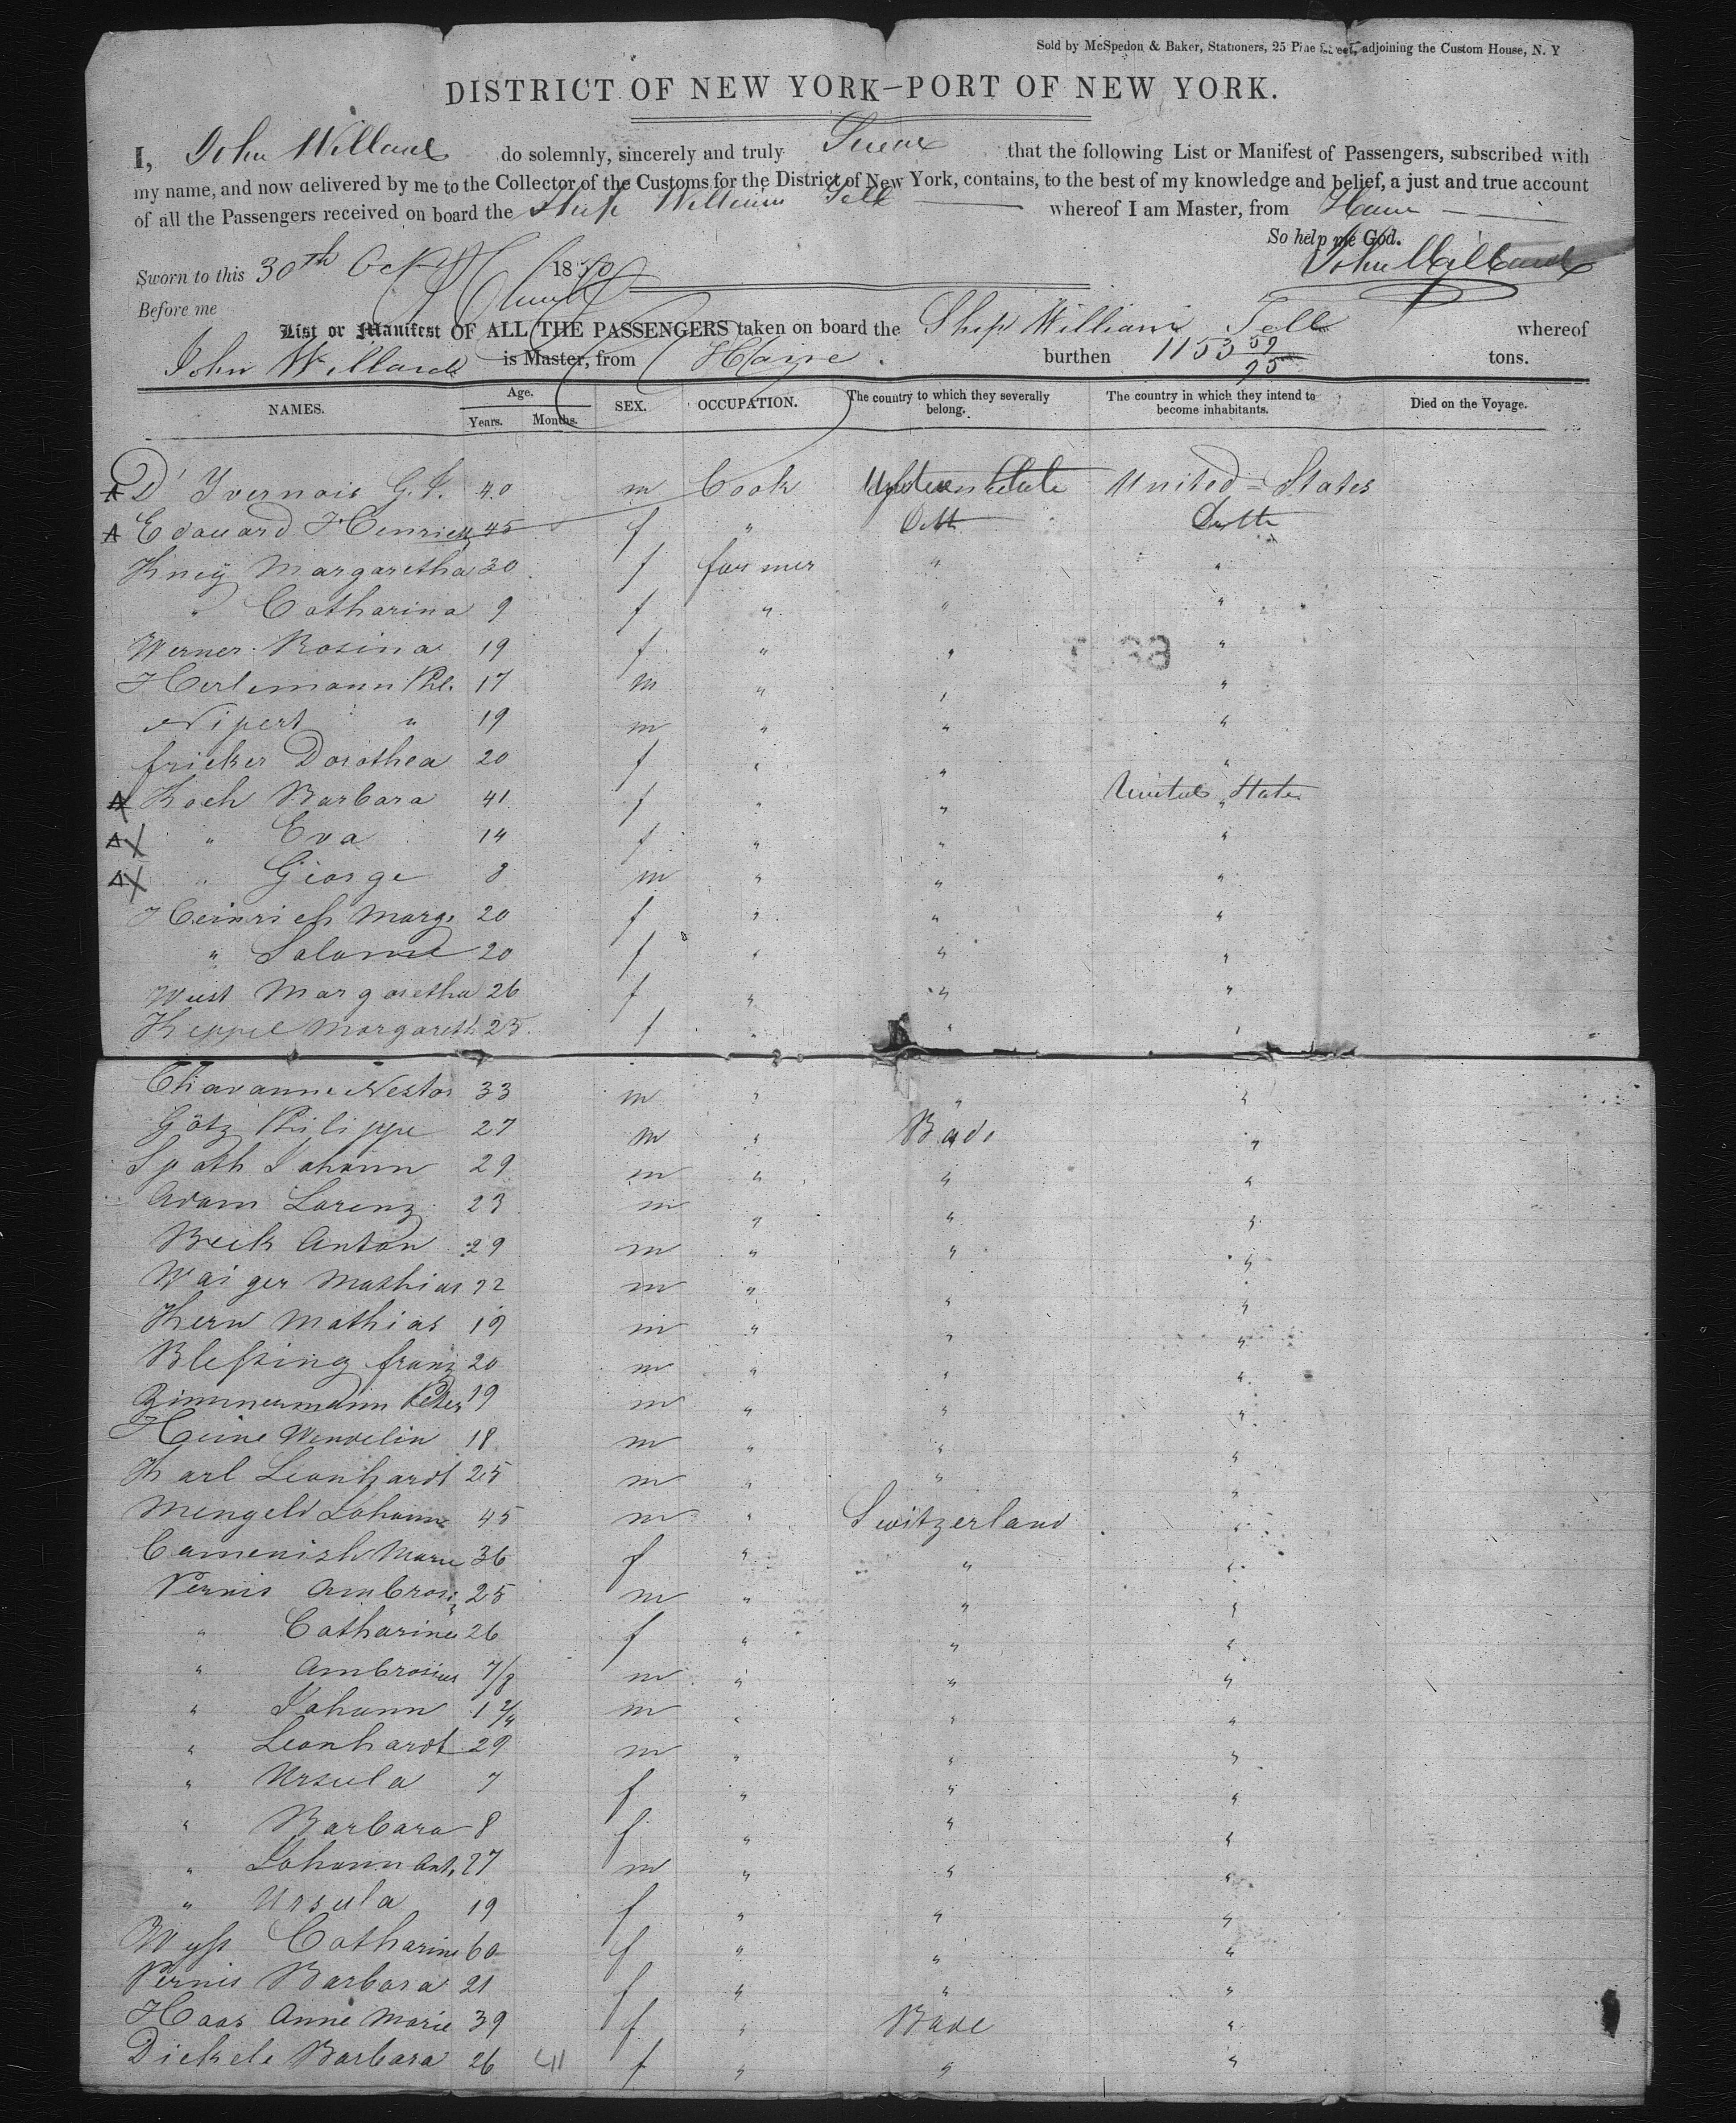 Sold by McSpedon & Baker, Stationers, 25 Pine Street, adjoining the Custom House, N. Y
DISTRICT OF NEW YORK—PORT OF NEW YORK.
I, John Willard do solemnly, sincerely and truly Swear that the following List or Manifest of Passengers, subscribed with
my name, and now delivered by me to the Collector of the Customs for the District of New York, contains, to the best of my knowledge and belief, a just and true account
of all the Passengers received on board the Ship William Tell whereof I am Master, from Havre
So help me God.
Sworn to this 30th Oct 1850 John Willard
Before me
List or Manifest OF ALL THE PASSENGERS taken on board the Ship William Tell whereof
John Willard is Master, from Havre burthen 1153 59/95 tons.
NAMES. Age. Years. Months. SEX. OCCUPATION. The country to which they severally belong. The country in which they intend to become inhabitants. Died on the Voyage.
D'Yvernois G. F. 40 m Cook United States
Edouard Henriett 45 f " Ditto Ditto
Kney Margaretha 30 f farmer " "
" Catharina 9 f " " "
Werner Rosina 19 f " " "
Herlemann Phl. 17 m " " "
Nipert " 19 m " " "
fricker Dorothea 20 f " " "
Koch Barbara 41 f " " United States "
" Eva 14 f " " "
" George 8 m " " "
Heinrich Marg. 20 f " " "
" Salome 20 f " " "
Wust Margaretha 26 f " " "
Keppel Margareth 25 f " " "
Chavanne Nestor 33 m " " "
Götz Philippe 27 m " Bade "
Spath Johann 29 m " " "
Adam Lorenz 23 m " " "
Beck Anton 29 m " " "
Waiger Mathias 22 m " " "
Kern Mathias 19 m " " "
Bleßing franz 20 m " " "
Zimmermann Peter 19 m " " "
Heine Wendelin 18 m " " "
Karl Leonhardt 25 m " " "
Mengelt Johann 45 m " Switzerland "
Camenish Marie 36 f " " "
Pernis Ambrosi 25 m " " "
" Catharine 26 f " " "
" Ambrosius 7/8 m " " "
" Johann 1 2/4 m " " "
" Leonhardt 29 m " " "
" Ursula 7 f " " "
" Barbara 8 f " " "
" Johann Ant. 27 m " " "
" Ursula 19 f " " "
Wyß Catharine 60 f " " "
Pernis Barbara 21 f " " "
Haas Anne Marie 39 f " Bade "
Dickele Barbara 26 41 f " " "